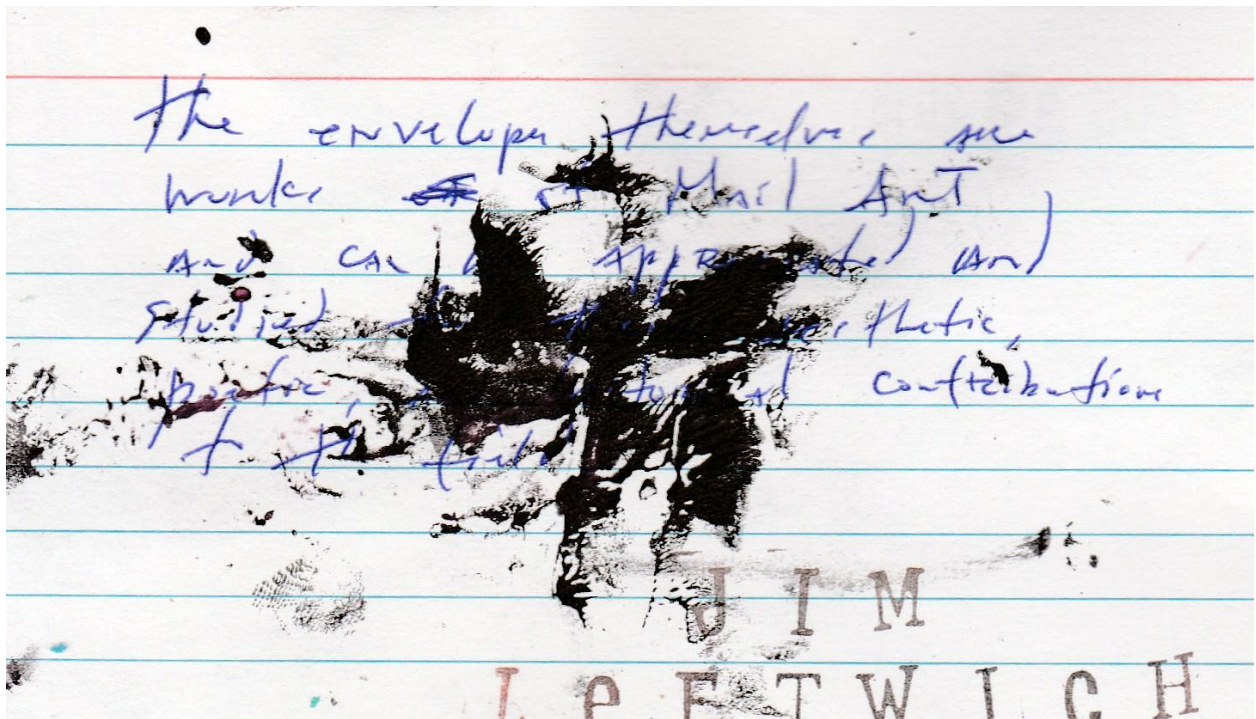 the envelopes themselves are
works of Mail Art
and can be appreciated and
studied for their aesthetic,
poetic, and historical contributions
to the field
JIM
LeFTWICH